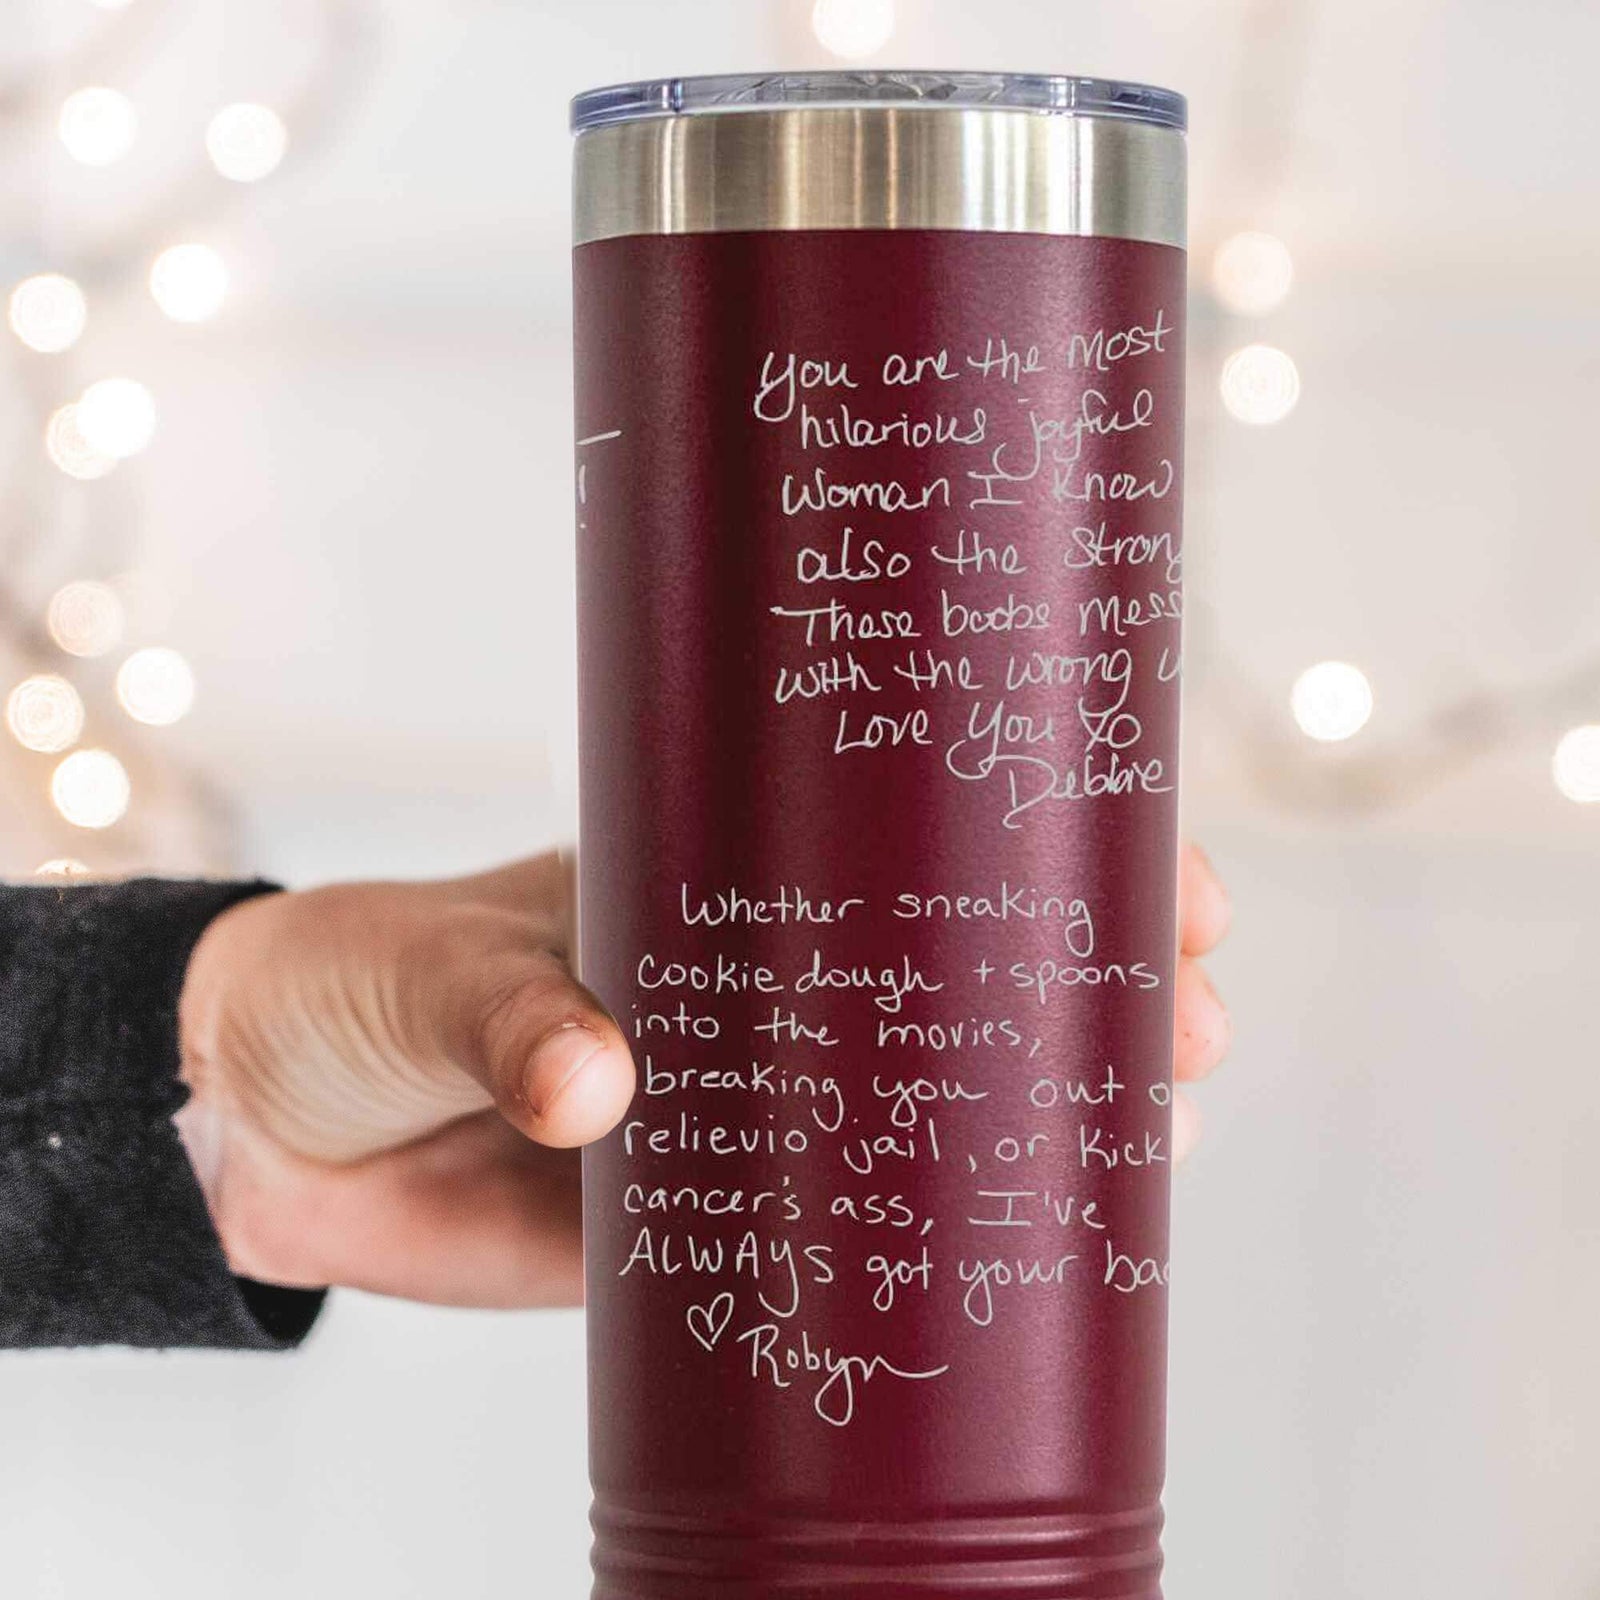 You are the most
hilarious joyful
Woman I know
also the Strong
These boobs mess
with the wrong
Love You XO
Debbie
!
Whether sneaking
cookie dough + spoons
into the movies,
breaking you out o
relievio jail, or kick
cancer's ass, I've
ALWAYS got your bac
♡ Robyn